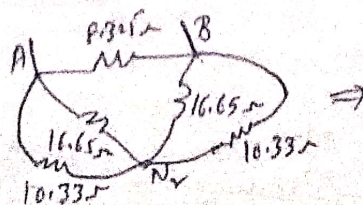 8.325 Ω
A
B
16.65 Ω
16.65 Ω
10.33 Ω
10.33 Ω
⇒